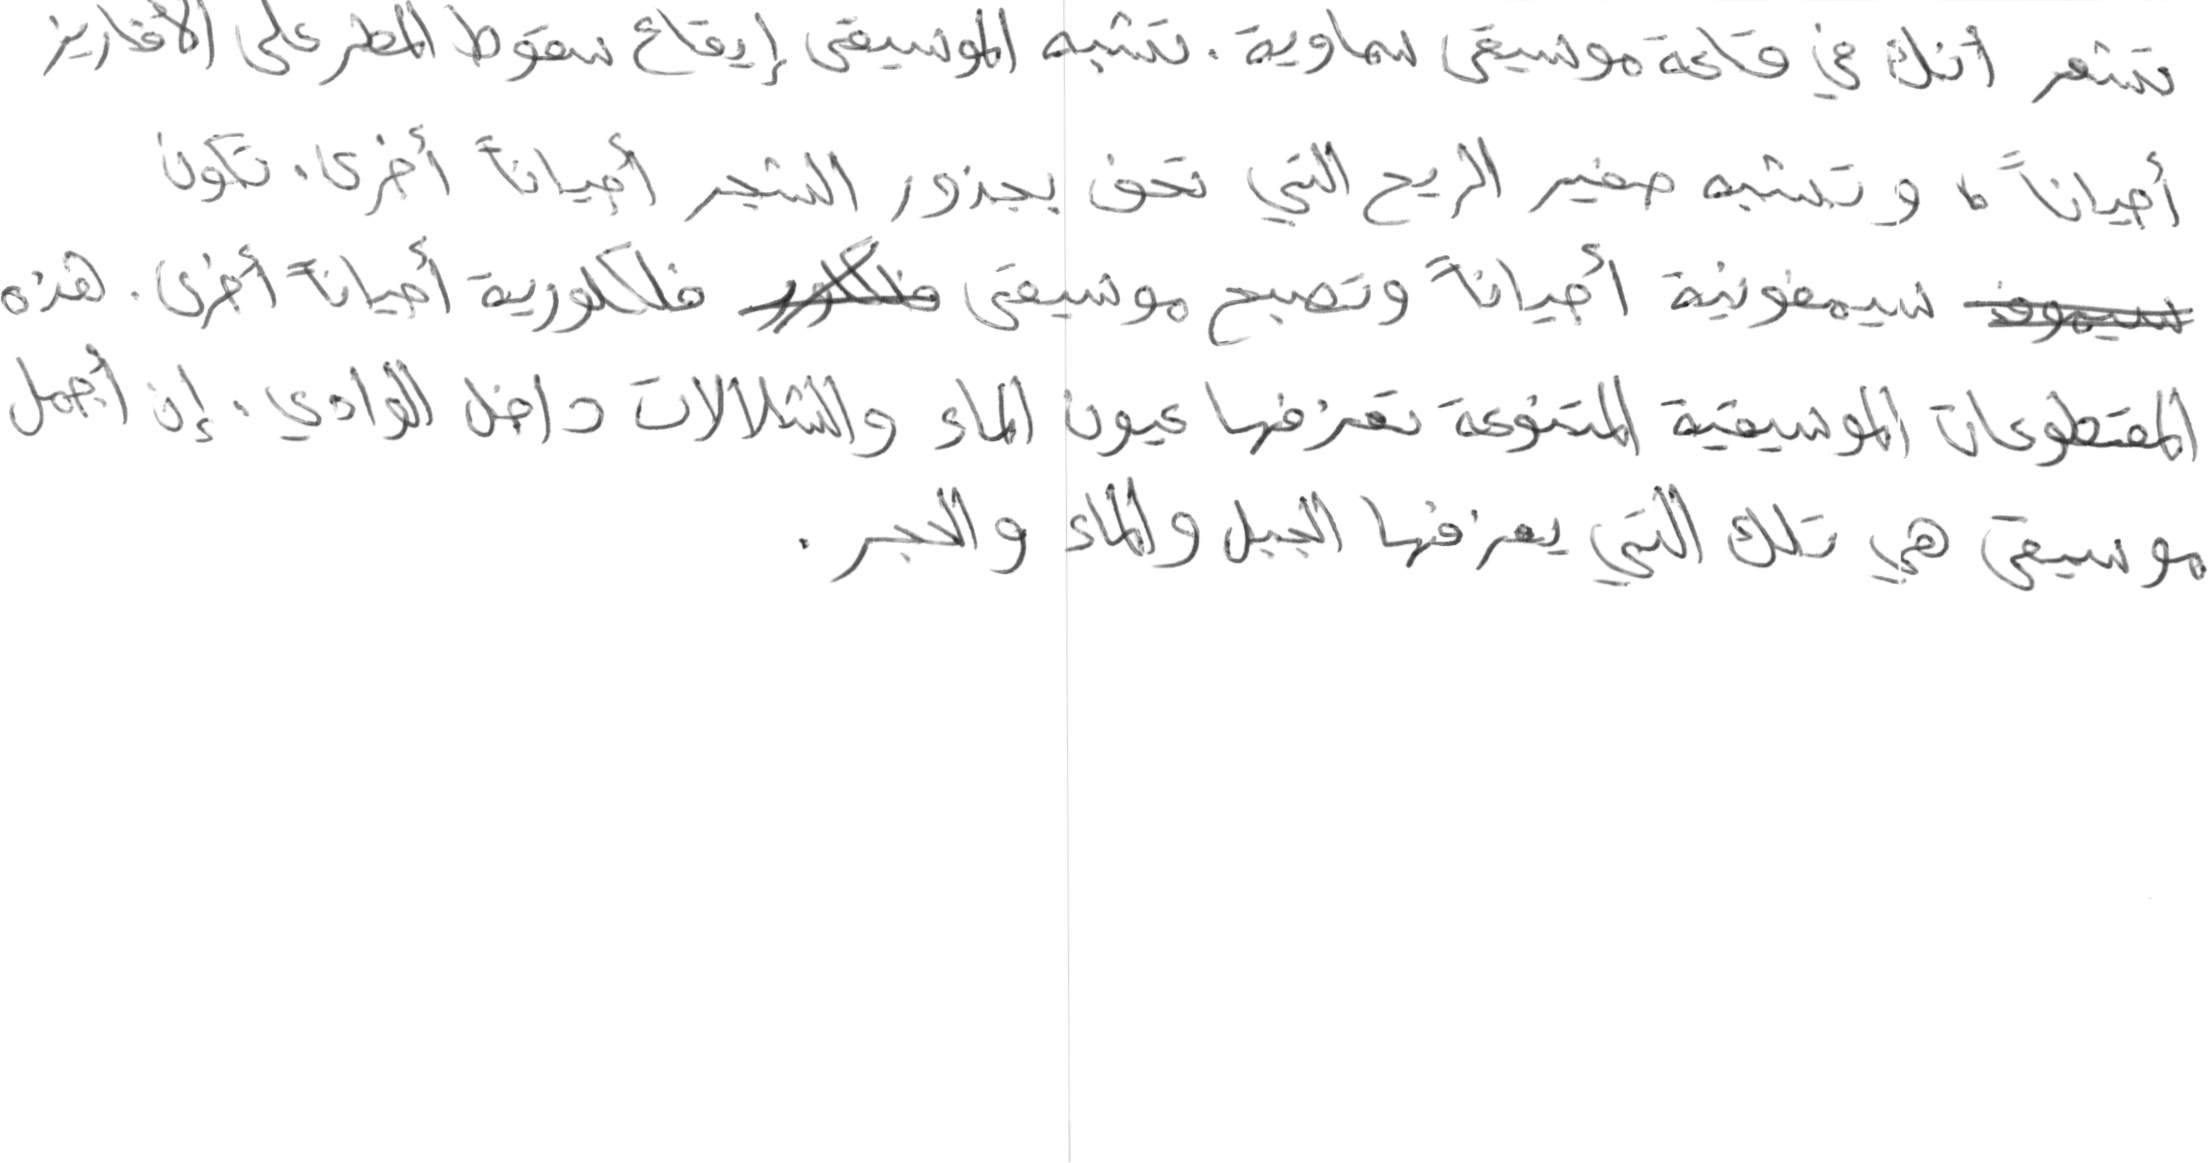 تشعر أنك في قاعة موسيقى سماوية. تشبه الموسيقى إيقاع سقوط المطر على الأفاريز
أحياناً، وتشبه صفير الريح التي تحف بجذور الشجر أحياناً أخرى. تكون
سيمفونية أحياناً وتصبح موسيقى فلكلور فلكلورية أحياناً أخرى. هذه
المقطوعات الموسيقية المتنوعة تعزفها عيون الماء والشلالات داخل الوادي. إن أجمل
موسيقى هي تلك التي يعزفها الجبل والماء والحجر.